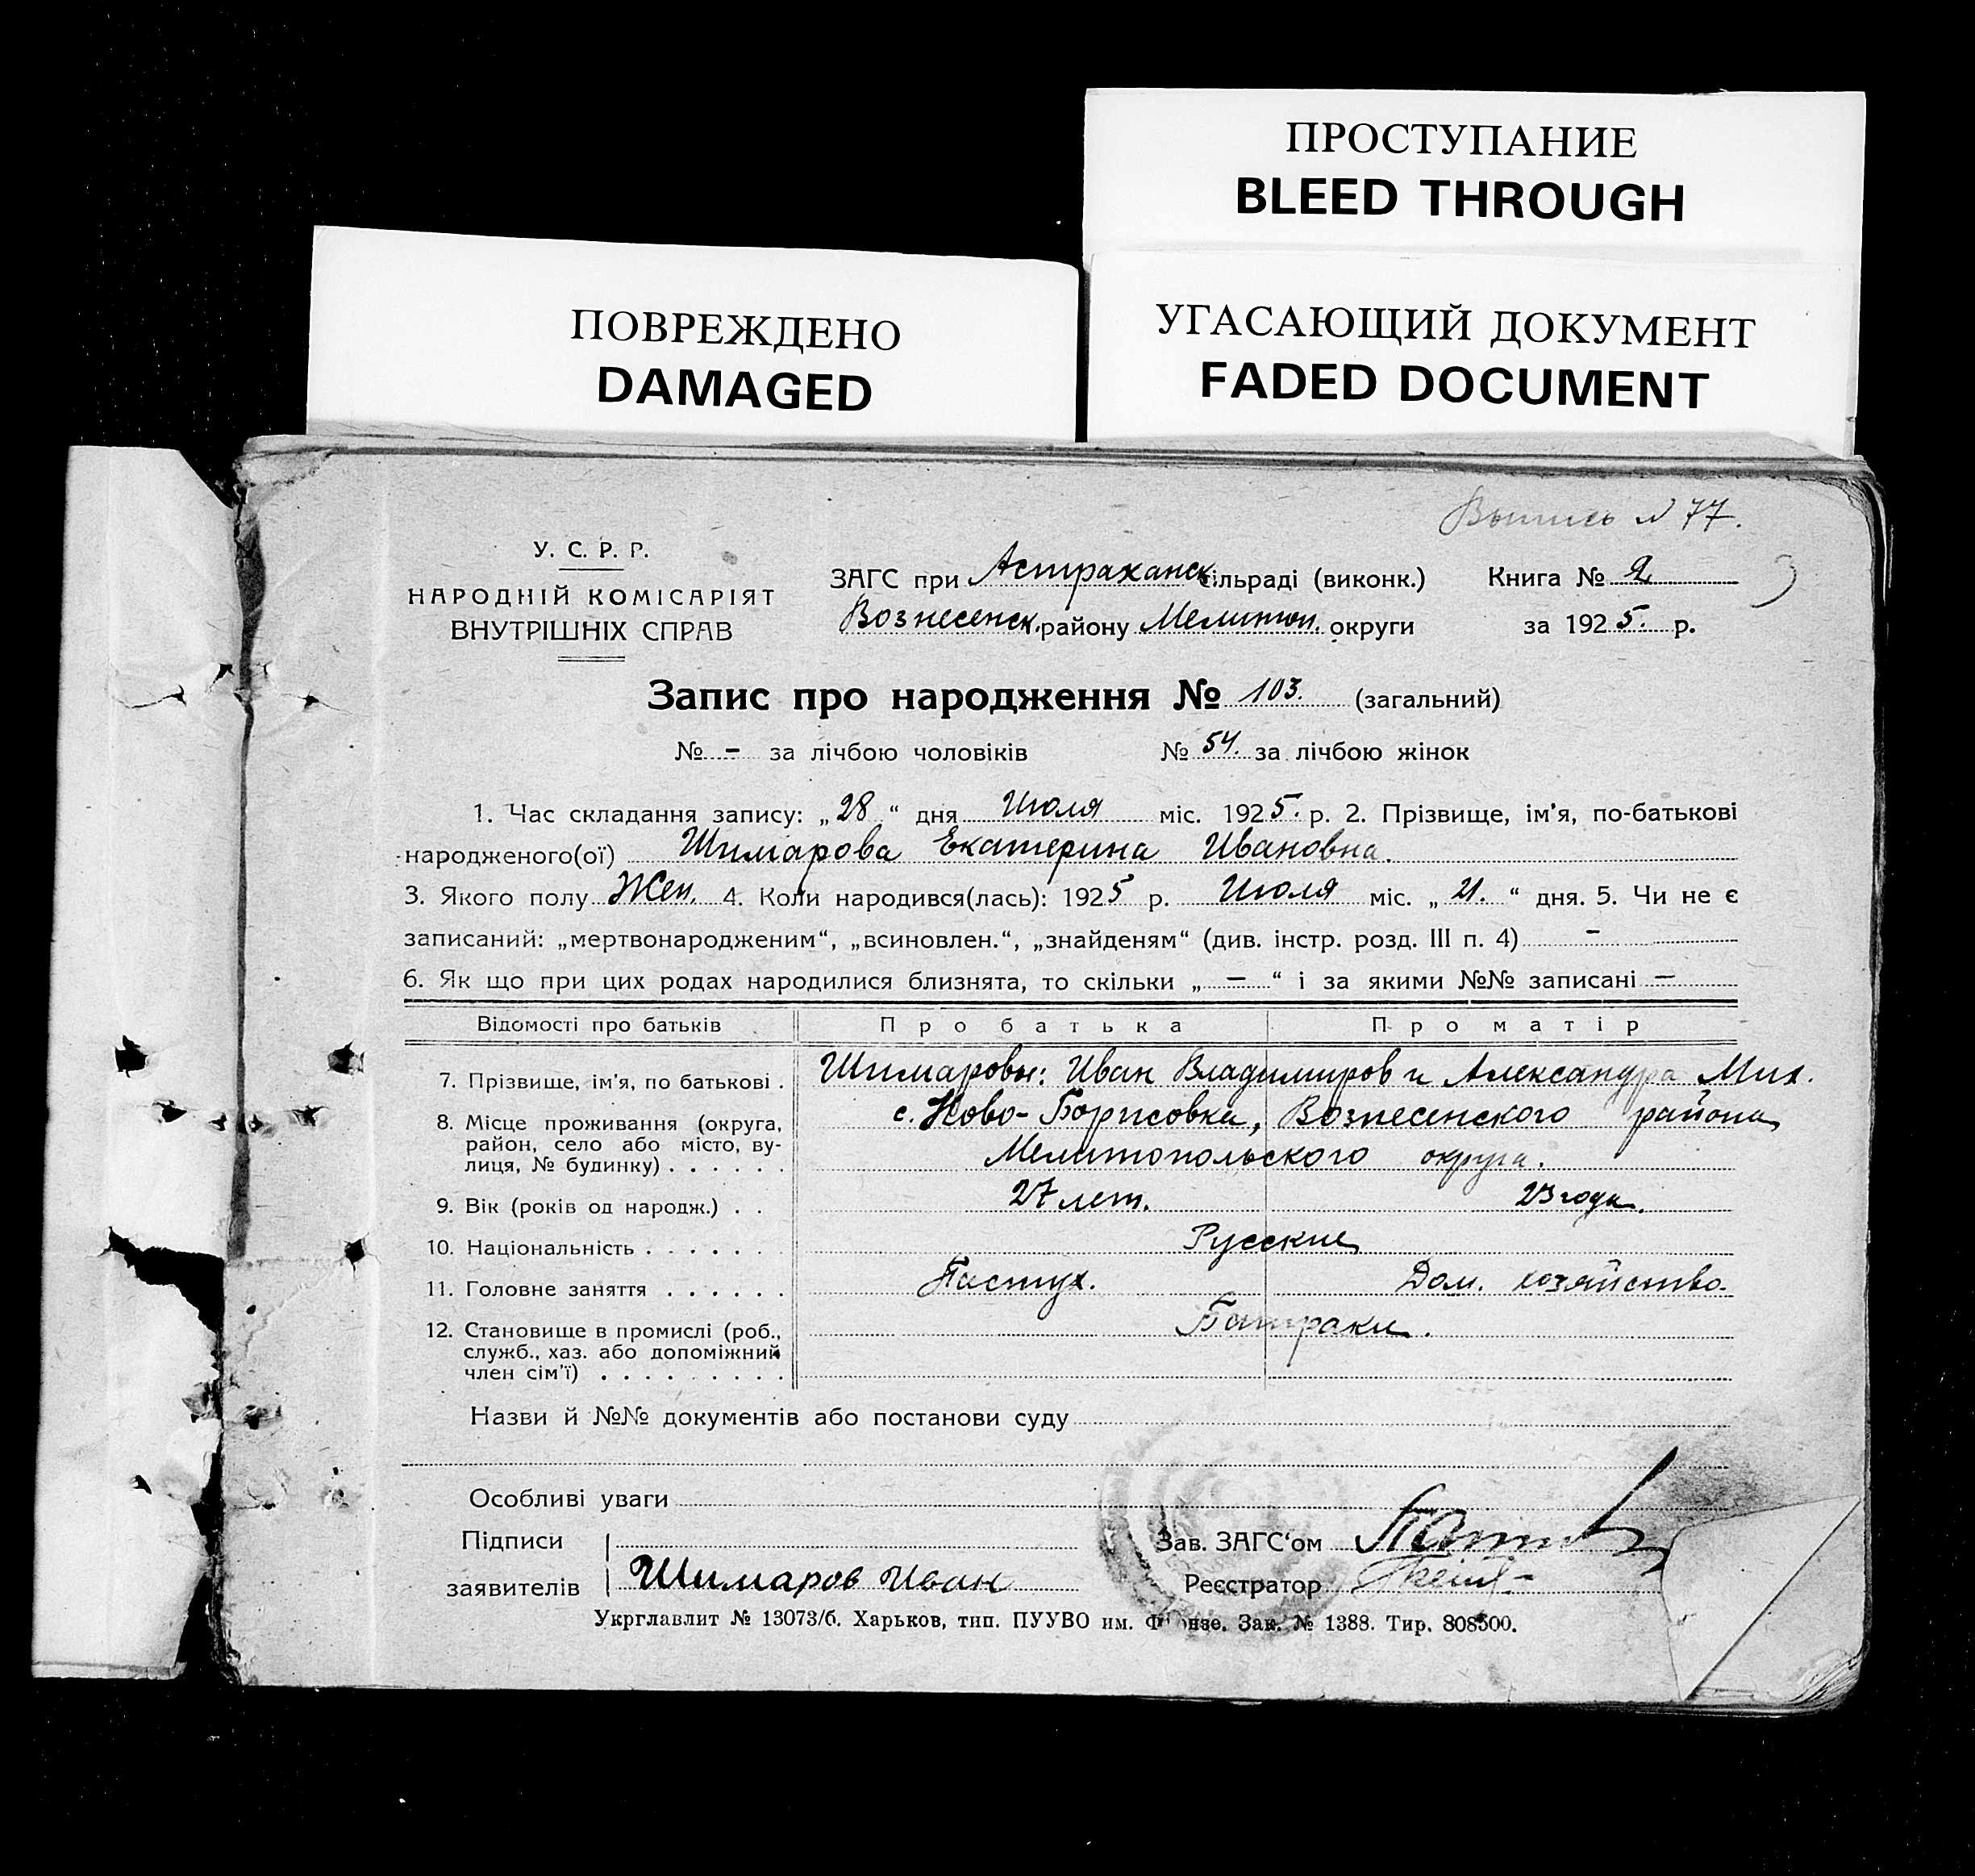 ПРОСТУПАНИЕ
BLEED THROUGH
УГАСАЮЩИЙ ДОКУМЕНТ
FADED DOCUMENT
ПОВРЕЖДЕНО
DAMAGED
Выпись N 77.
3
У. С. Р. Р.
НАРОДНІЙ КОМІСАРІЯТ
ВНУТРІШНІХ СПРАВ
ЗАГС при Астраханск. сільраді (виконк.) Книга № 2
Вознесенск. району Мелитоп. округи за 1925. р.
Запис про народження № 103. (загальний)
№ - за лічбою чоловіків № 54. за лічбою жінок
1. Час складання запису: „28“ дня Июля міс. 1925. р. 2. Прізвище, ім'я, по-батькові
народженого(ої) Шимарова Екатерина Ивановна.
3. Якого полу Жен. 4. Коли народився(лась): 1925 р. Июля міс. „21.“ дня. 5. Чи не є
записаний: „мертвонародженим“, „всиновлен.“, „знайденям“ (див. інстр. розд. III п. 4) -
6. Як що при цих родах народилися близнята, то скільки „—“ і за якими №№ записані —
Відомості про батьків Про батька Про матір
7. Прізвище, ім'я, по батькові . Шимаровы: Иван Владимиров и Александра Мих.
8. Місце проживання (округа, район, село або місто, вулиця, № будинку) . . . . . . с. Ново-Борисовка, Вознесенского района,
Мелитопольского округа.
9. Вік (років од народж.) . . 27 лет. 23 года.
10. Національність . . . . . . Русские
11. Головне заняття . . . . . . Пастух. Дом. хозяйство.
12. Становище в промислі (роб., служб., хаз. або допоміжний член сім'ї) . . . . . . . . . Батраки.
Назви й №№ документів або постанови суду
Особливі уваги
Підписи заявителів Шимаров Иван
Зав. ЗАГС'ом
Реєстратор
Укрглавлит № 13073/б. Харьков, тип. ПУУВО им. Фрунзе. Зак. № 1388. Тир. 808500.